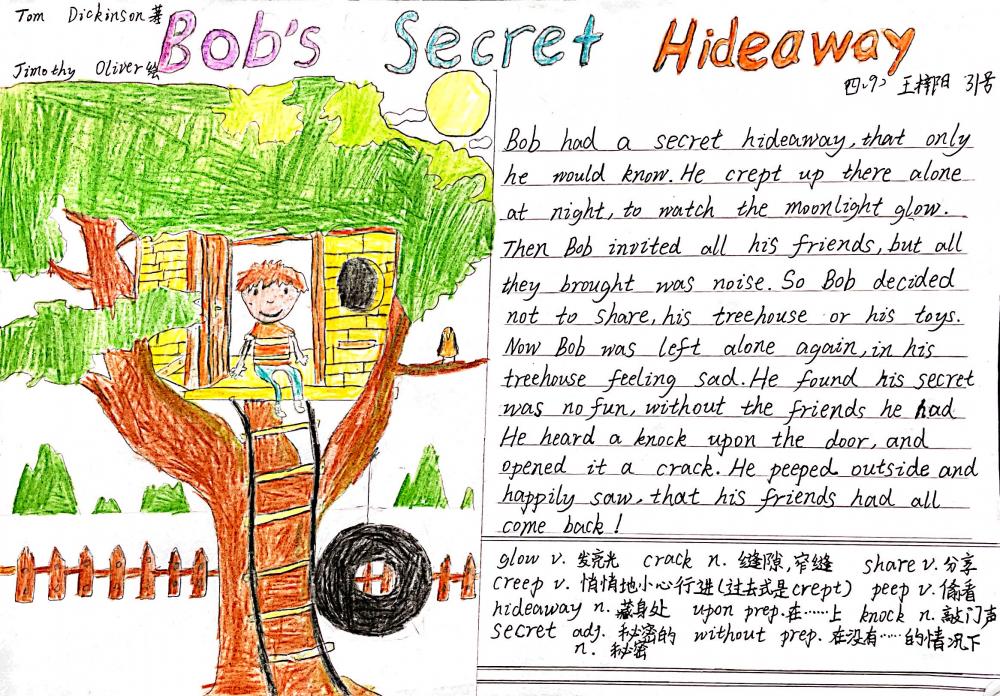 Tom Dickinson 著
Jimothy Oliver 绘
Bob's Secret Hideaway
四、9) 王梓阳 31号
Bob had a secret hideaway, that only
he would know. He crept up there alone
at night, to watch the moonlight glow.
Then Bob invited all his friends, but all
they brought was noise. So Bob decided
not to share, his treehouse or his toys.
Now Bob was left alone again, in his
treehouse feeling sad. He found his secret
was no fun, without the friends he had
He heard a knock upon the door, and
opened it a crack. He peeped outside and
happily saw, that his friends had all
come back!
glow v. 发亮光 crack n. 缝隙,窄缝 share v. 分享
creep v. 悄悄地小心行进(过去式是crept) peep v. 偷看
hideaway n. 藏身处 upon prep. 在……上 knock n. 敲门声
secret adj. 秘密的 without prep. 在没有……的情况下
n. 秘密